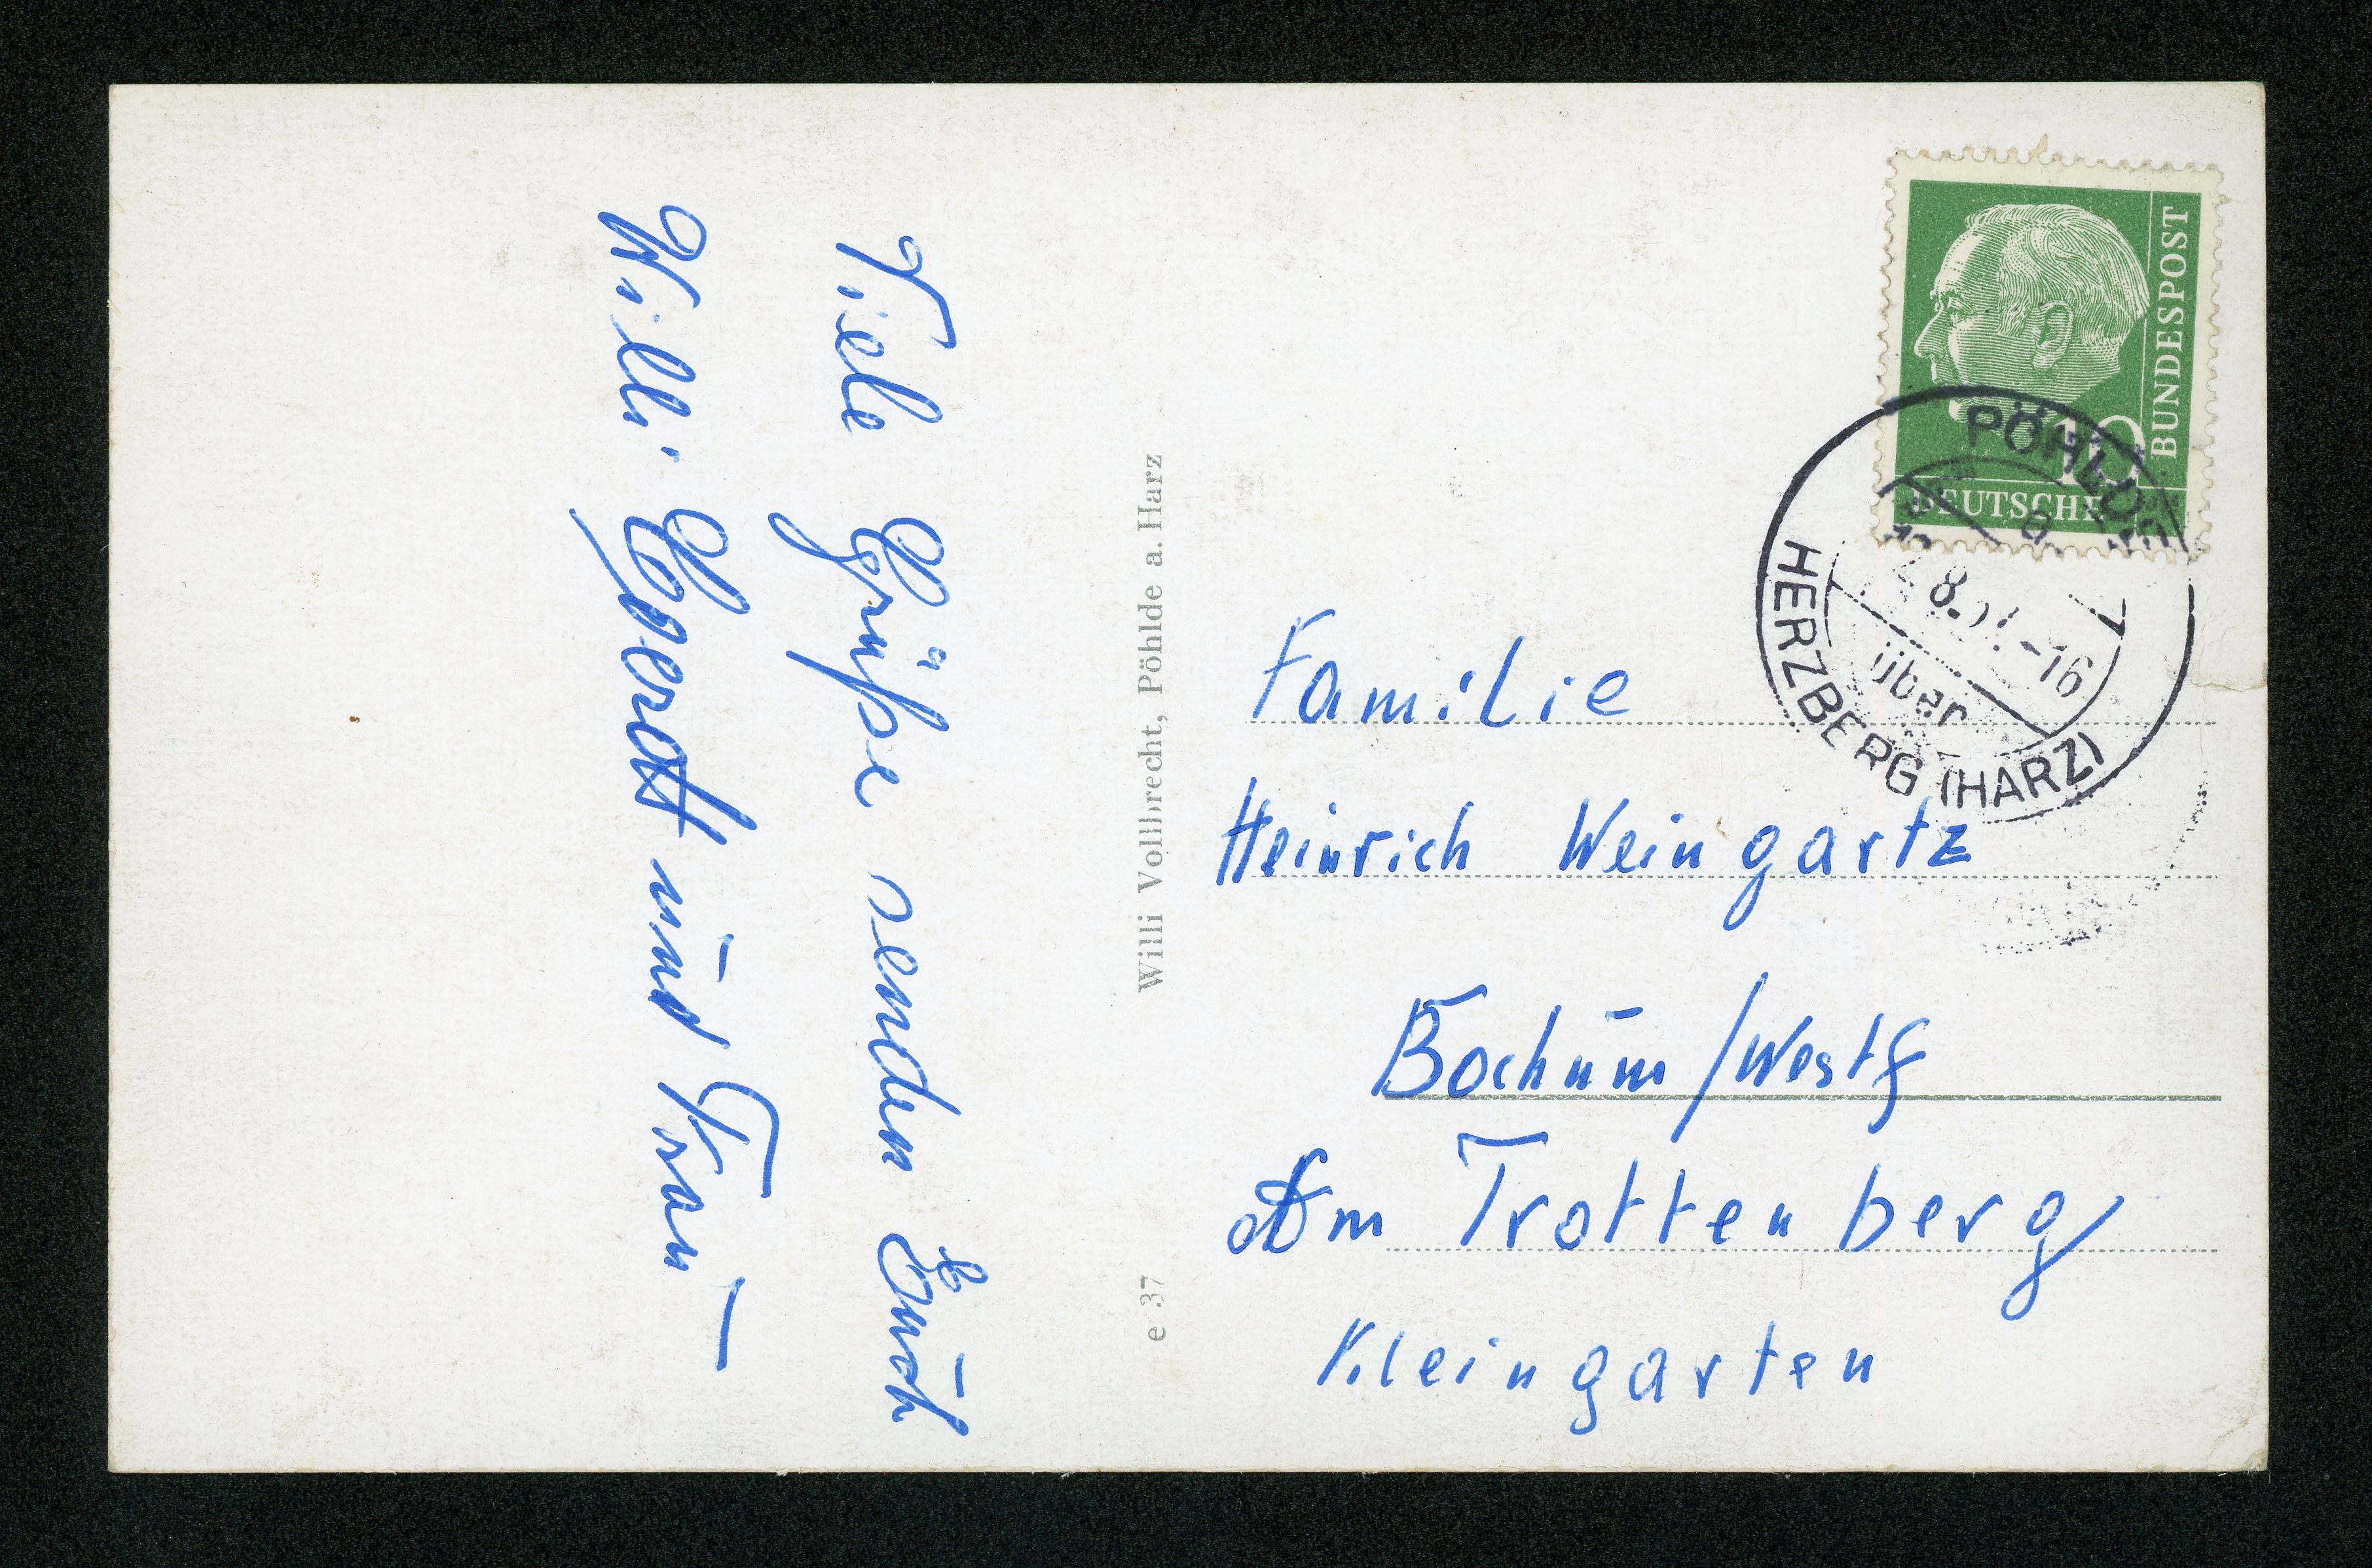 Viele Grüße senden Euch
Willi Everott und Frau
Willi Vollbrecht, Pöhlde a. Harz
e 37
DEUTSCHE
BUNDESPOST
10
PÖHLDE
über
HERZBERG (HARZ)
Familie
Heinrich Weingartz
Bochum/Westf
Am Trottenberg
Kleingarten